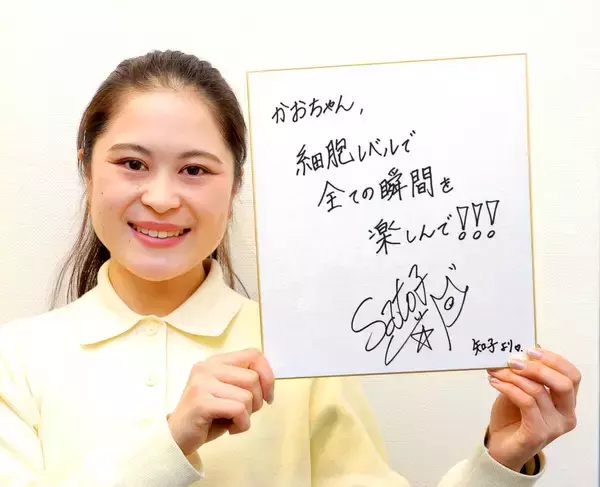 かおちゃん,
細胞レベルで
全ての瞬間を
楽しんで!!!
Sato子
知子より。